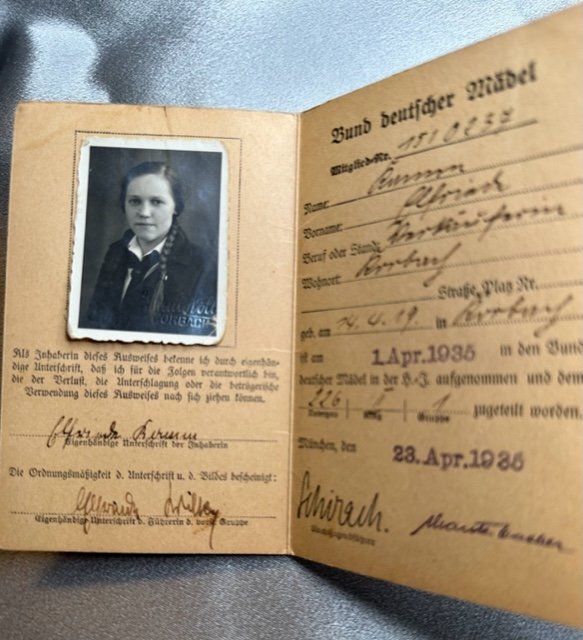 Als Inhaberin dieses Ausweises bekenne ich durch eigenhän-
dige Unterschrift, daß ich für die Folgen verantwortlich bin,
die der Verlust, die Unterschlagung oder die betrügerische
Verwendung dieses Ausweises nach sich ziehen können.
Elfriede
Eigenhändige Unterschrift der Inhaberin
Die Ordnungsmäßigkeit d. Unterschrift u. d. Bildes bescheinigt:
Eigenhändige Unterschrift d. Führerin d. Gruppe
Bund deutscher Mädel
Mitglied-Nr. 1510237
Name:
Vorname: Elfriede
Beruf oder Stand: Verkäuferin
Wohnort:
Straße, Platz Nr.
geb. am 14.4.19. in
ist am 1.Apr.1935 in den Bund
deutscher Mädel in der H.-J. aufgenommen und dem
226 1
Gruppe zugeteilt worden.
München, den 23.Apr.1935
Schirach.
Reichsjugendführer